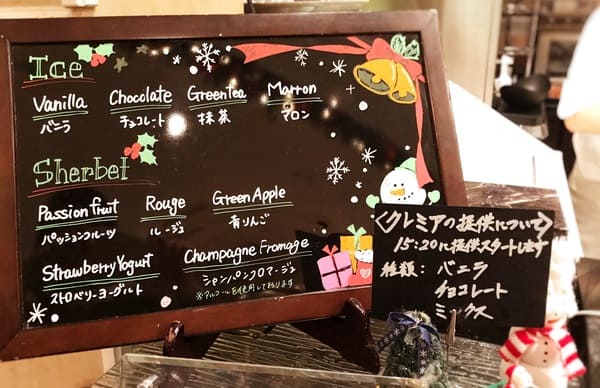 Ice
Vanilla
バニラ
Chocolate
チョコレート
GreenTea
抹茶
Marron
マロン
Sherbet
Passion fruit
パッションフルーツ
Rouge
ルージュ
Green Apple
青りんご
Strawberry Yogurt
ストロベリーヨーグルト
Champagne Fromage
シャンパンフロマージュ
※アルコールを使用しております
<クレミアの提供について>
15:20に提供スタートします
種類: バニラ
チョコレート
ミックス